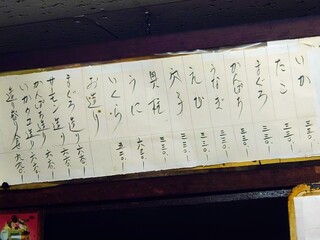 いか 三三〇-
たこ 三三〇-
まぐろ 三三〇-
かんぱち 三三〇-
うなぎ 三三〇-
えび 三三〇-
穴子 三三〇-
貝柱 三三〇-
うに 六六〇-
いくら 五五〇-
お造り
まぐろ造り 六六〇-
サーモン造り 六六〇-
かんぱち造り 六六〇-
いか造り 六六〇-